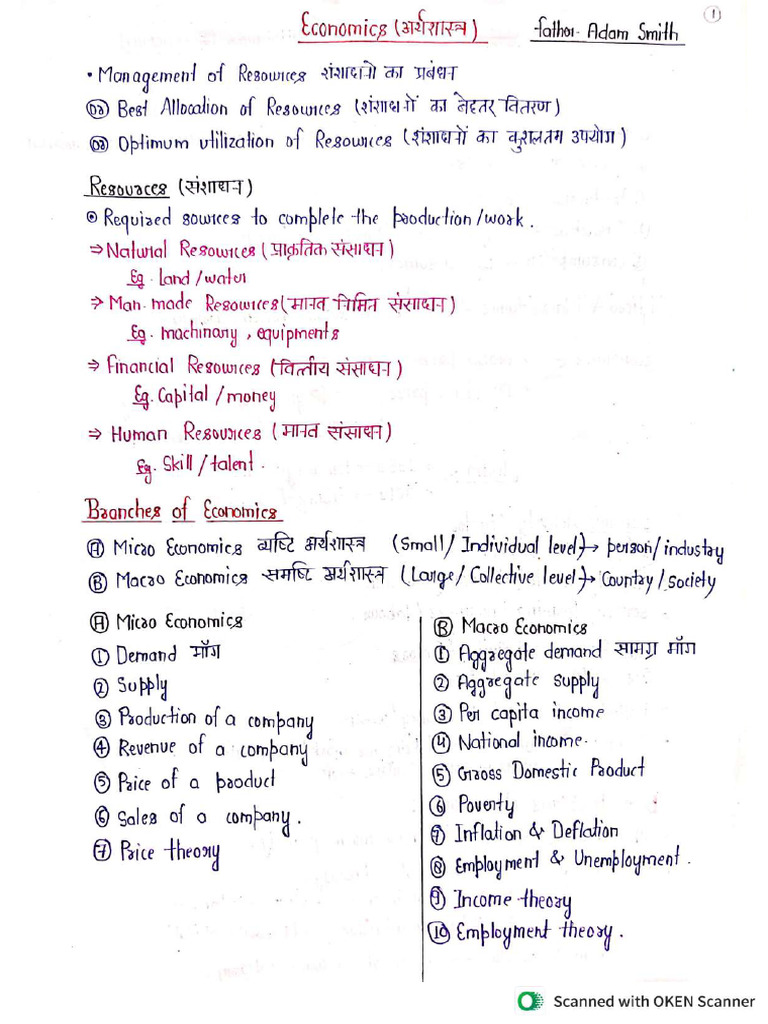 1
Economics (अर्थशास्त्र) father- Adam Smith
• Management of Resources संसाधनो का प्रबंधन
Or Best Allocation of Resources (संसाधनों का बेहतर वितरण)
Or Optimum utilization of Resources (संसाधनों का कुशलतम उपयोग)
Resources (संसाधन)
Required sources to complete the production/work.
⇒ Natural Resources (प्राकृतिक संसाधन)
Eg. land/water
⇒ Man-made Resources (मानव निर्मित संसाधन)
Eg. machinary, equipments
⇒ Financial Resources (वित्तीय संसाधन)
Eg. Capital/money
⇒ Human Resources (मानव संसाधन)
Eg. Skill/talent.
Branches of Economics
A Micro Economics व्यष्टि अर्थशास्त्र (Small/Individual level)→ person/industry
B Macro Economics समष्टि अर्थशास्त्र (Large/Collective level)→ Country/society
A Micro Economics
1 Demand माँग
2 Supply
3 Production of a company
4 Revenue of a company
5 Price of a product
6 Sales of a company.
7 Price theory
B Macro Economics
1 Aggregate demand सामग्र माँग
2 Aggregate supply
3 Per capita income
4 National income.
5 Gross Domestic Product
6 Poverty
7 Inflation & Deflation
8 Employment & Unemployment.
9 Income theory
10 Employment theory.
Scanned with OKEN Scanner